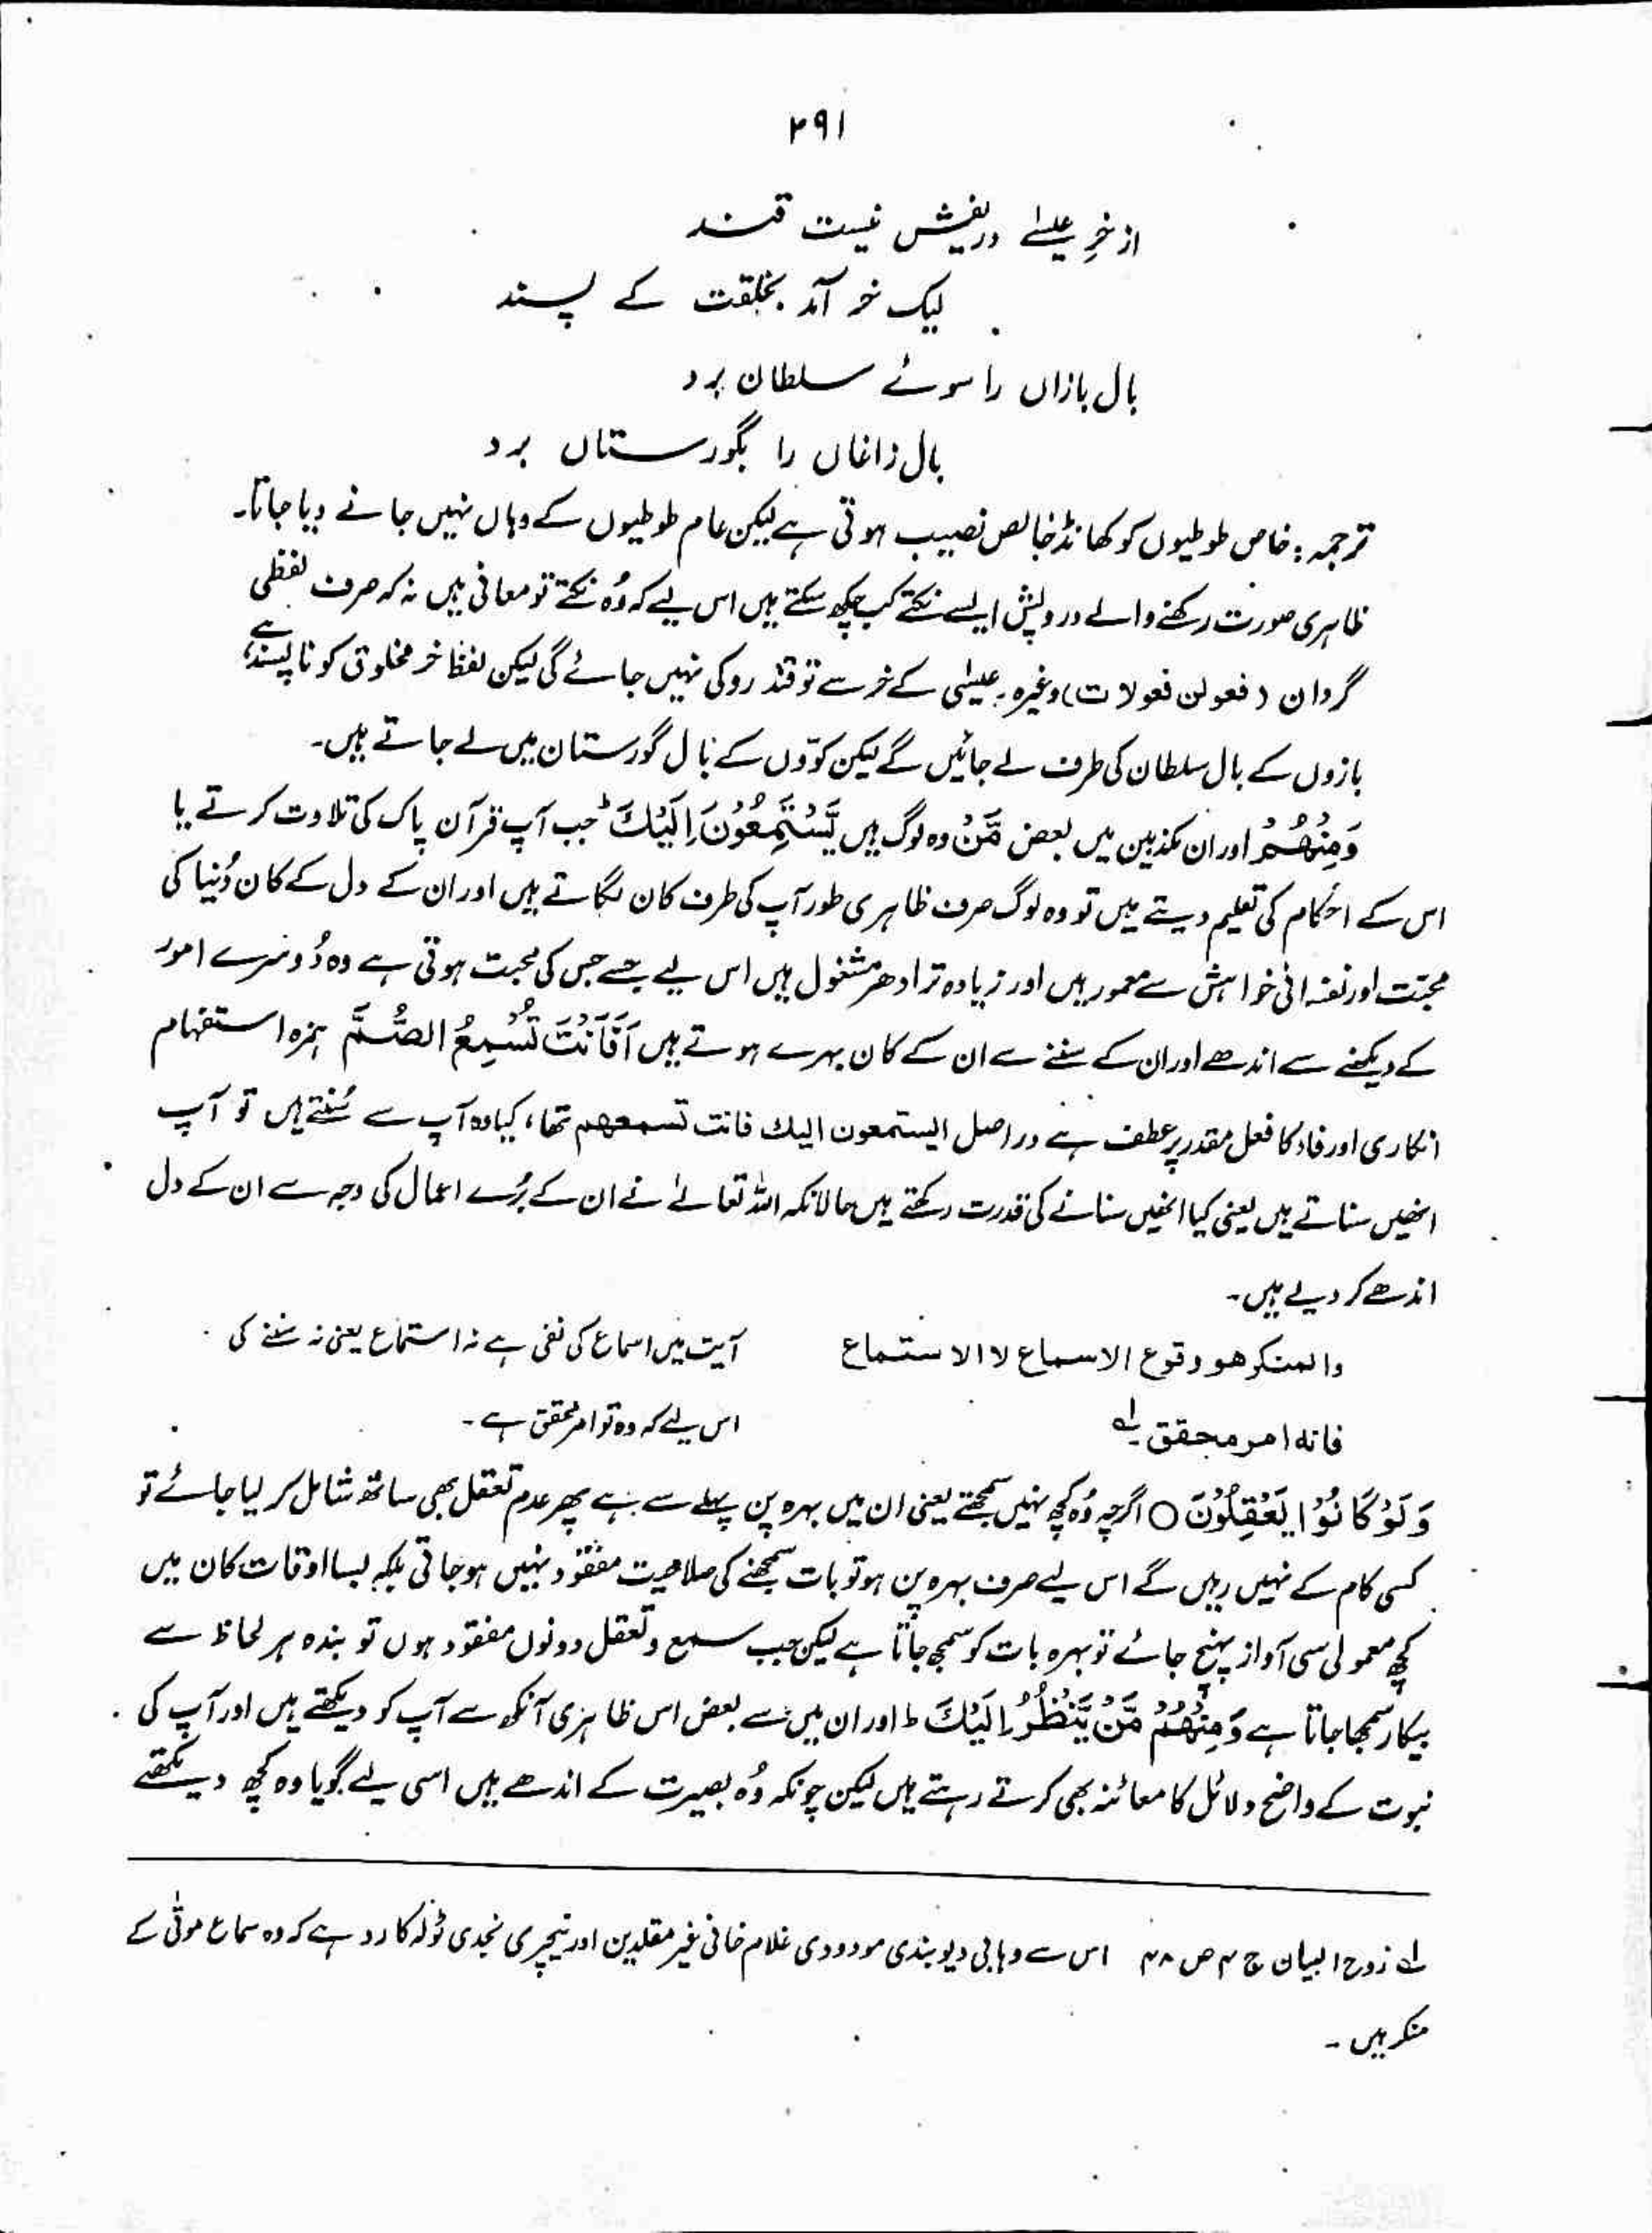 ۲۹۱
از خرِ عیسٰے دریغش نیست قند
لیک خر آمد بخلقت کے پسند
بال بازاں را سوئے سلطان برد
بال زاغاں را بگورستاں برد
ترجمہ: خاص طوطیوں کو کھانڈ خالص نصیب ہوتی ہے لیکن عام طوطیوں کے وہاں نہیں جانے دیا جاتا۔
ظاہری صورت رکھنے والے درویش ایسے نکتے کب چکھ سکتے ہیں اس لیے کہ وُہ نکتے تو معانی ہیں نہ کہ صرف لفظی
گردان (فعولن فعولات) وغیرہ۔ عیسٰی کے خر سے تو قند روکی نہیں جائے گی لیکن لفظ خر مخلوق کو ناپسند ہے،
بازوں کے بال سلطان کی طرف لے جائیں گے لیکن کوّوں کے بال گورستان میں لے جاتے ہیں۔
وَمِنْھُمْ اور ان مکذبین میں بعض مَّنْ وہ لوگ ہیں یَّسْتَمِعُوْنَ اِلَیْكَ ط جب آپ قرآن پاک کی تلاوت کرتے یا
اس کے احکام کی تعلیم دیتے ہیں تو وہ لوگ صرف ظاہری طور آپ کی طرف کان لگاتے ہیں اور ان کے دل کے کان دُنیا کی
محبّت اور نفسانی خواہش سے معمور ہیں اور زیادہ تر ادھر مشغول ہیں اس لیے جسے جس کی محبت ہوتی ہے وہ دُوسرے امور
کے دیکھنے سے اندھے اور ان کے سننے سے ان کے کان بہرے ہوتے ہیں اَفَاَنْتَ تُسْمِعُ الصُّمَّ ہمزہ استفہام
انکاری اور فاء کا فعل مقدر پر عطف ہے دراصل الیستمعون الیك فانت تسمعھم تھا، کیا وہ آپ سے سُنتے ہیں تو آپ
انھیں سناتے ہیں یعنی کیا انھیں سنانے کی قدرت رکھتے ہیں حالانکہ اللہ تعالےٰ نے ان کے بُرے اعمال کی وجہ سے ان کے دل
اندھے کر دیے ہیں۔
والمنکر ھو وقوع الاسماع لا الاستماع
فانہ امر محقق۔ لہ
آیت میں اسماع کی نفی ہے نہ استماع یعنی نہ سننے کی
اس لیے کہ وہ تو امر محقق ہے۔
وَلَوْ كَانُوْا یَعْقِلُوْنَ ○ اگرچہ وُہ کچھ نہیں سمجھتے یعنی ان میں بہرہ پن پہلے سے ہے پھر عدم تعقل بھی ساتھ شامل کر لیا جائے تو
کسی کام کے نہیں رہیں گے اس لیے صرف بہرہ پن ہو تو بات سمجھنے کی صلاحیت مفقود نہیں ہو جاتی بلکہ بسا اوقات کان میں
کچھ معمولی سی آواز پہنچ جائے تو بہرہ بات کو سمجھ جاتا ہے لیکن جب سمع و تعقل دونوں مفقود ہوں تو بندہ ہر لحاظ سے
بیکار سمجھا جاتا ہے وَمِنْھُمْ مَّنْ یَّنْظُرُ اِلَیْكَ ط اور ان میں سے بعض اس ظاہری آنکھ سے آپ کو دیکھتے ہیں اور آپ کی
نبوت کے واضح دلائل کا معائنہ بھی کرتے رہتے ہیں لیکن چونکہ وُہ بصیرت کے اندھے ہیں اسی لیے گویا وہ کچھ دیکھتے
لہ زوح البیان ج ۴ ص ۴۸ اس سے وہابی دیوبندی مودودی غلام خانی غیر مقلدین اور نیچری نجدی ٹولہ کا رد ہے کہ وہ سماع موتٰی کے
منکر ہیں۔